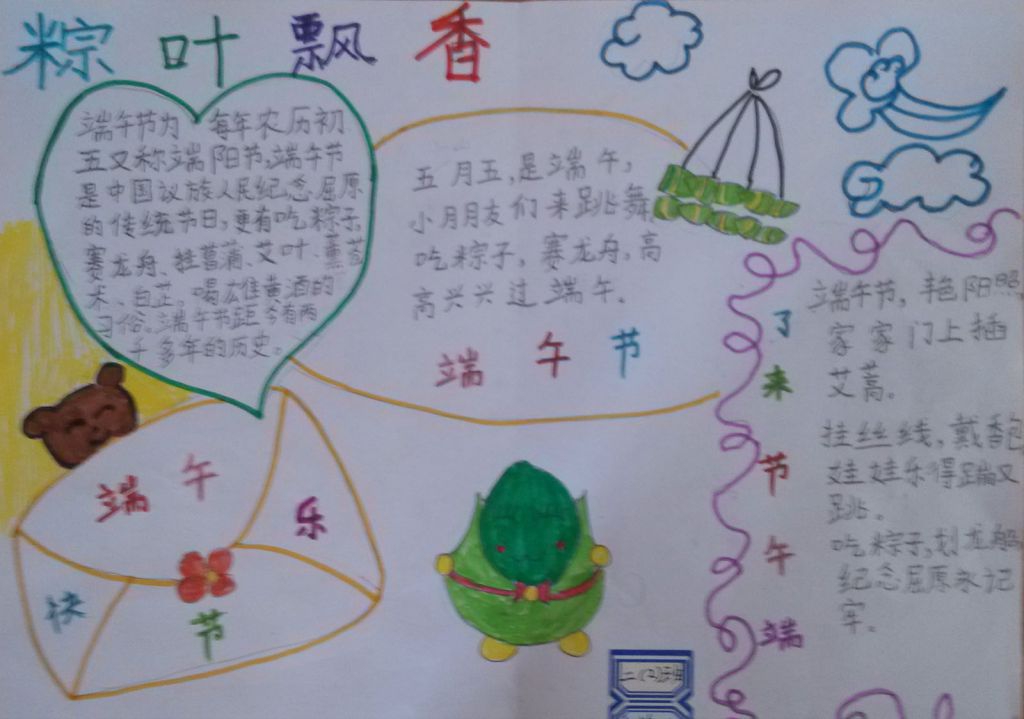 粽叶飘香
端午节为 每年农历初
五又称端阳节,端午节
是中国议族人民纪念屈原
的传统节日,更有吃粽子,
赛龙舟、挂菖蒲、艾叶、薰苍
术、白芷。喝雄黄酒的
习俗。端午节距今有两
千多年的历史。
五月五,是端午,
小月月友们来跳舞
吃粽子,赛龙舟,高
高兴兴过端午。
端午节
端午节,艳阳照,
家家门上插
艾蒿。
挂丝线,戴香包
娃娃乐得蹦又
跳。
吃粽子,划龙船
纪念屈原永记
牢。
了
来
节
午
端
端午
乐
快
节
二(2)班